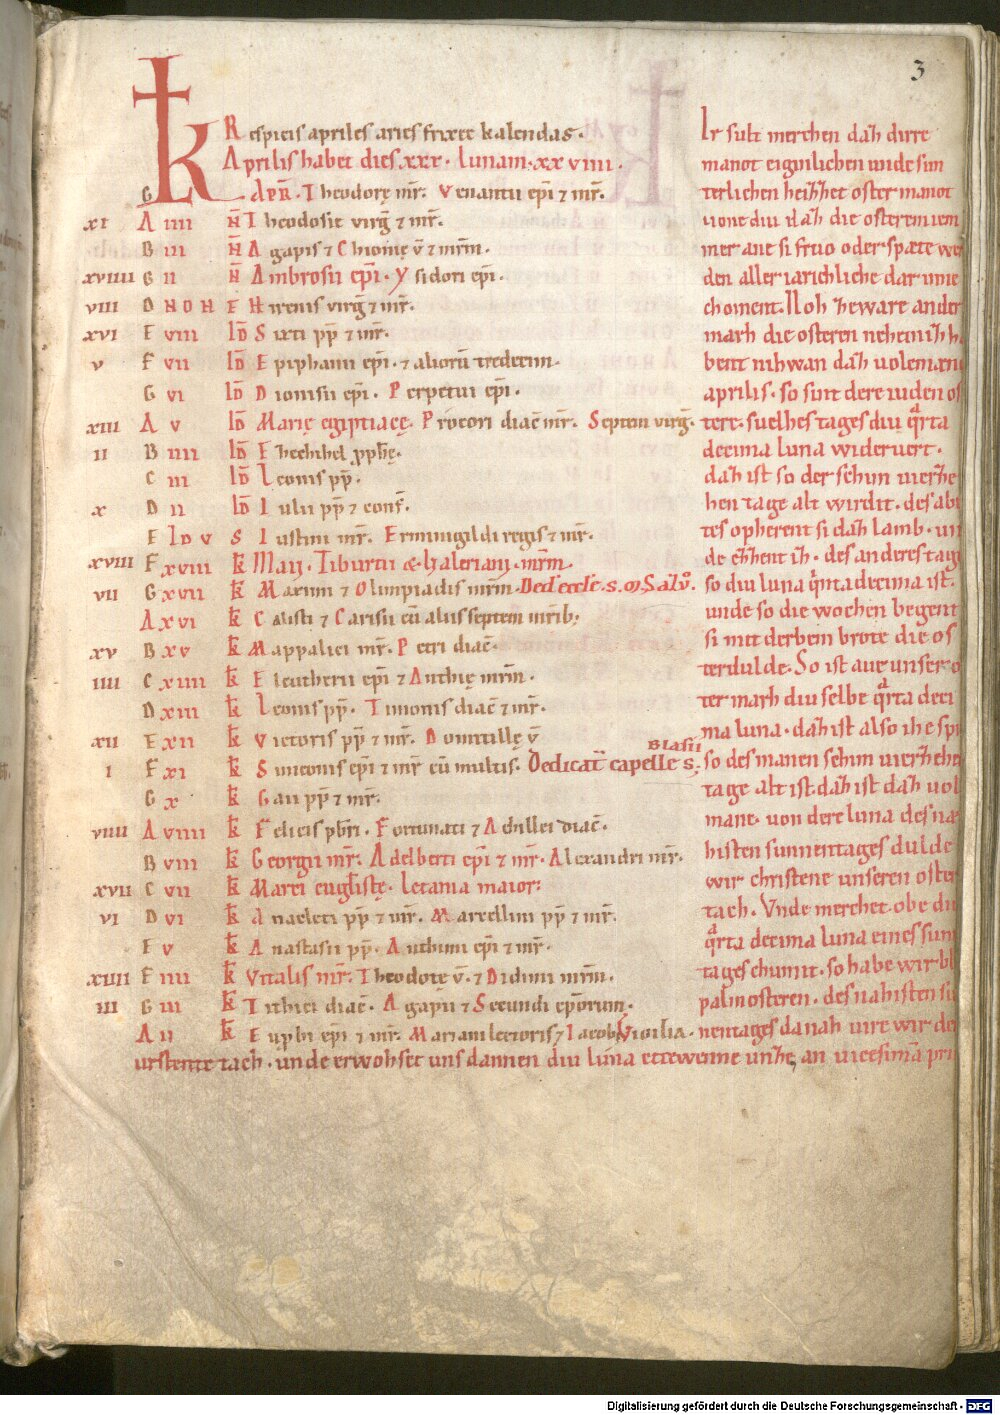 3
Respicis apriles aries frixee kalendas.
Aprilis habet dies xxx. lunam. xxviiii.
G KL APR̄. Theodorę mr̄. Venantii ep̄i ⁊ mr̄.
xi A iiii N̄ Theodosie virḡ ⁊ mr̄.
B iii N̄ Agapis ⁊ Chionię v̄ ⁊ mr̄m.
xviiii C ii N̄ Ambrosii ep̄i. Ysidori ep̄i.
viii D NON Hirenis virḡ ⁊ mr̄.
xvi E viii Id̄ Sixti pp̄ ⁊ mr̄.
v F vii Id̄ Epiphanii ep̄i. ⁊ aliorū tredecim.
G vi Id̄ Dionisii ep̄i. Perpetui ep̄i.
xiii A v Id̄ Marię egiptiacę. Procori diac̄ mr̄. Septem virḡ.
ii B iiii Id̄ Ezechihel pph̄ę.
C iii Id̄ Leonis pp̄.
x D ii Id̄ Iulii pp̄ ⁊ conf̄.
E IDVS Iustini mr̄. Erminigildi regis ⁊ mr̄.
xviii F xviii k̄ Maii. Tiburtii & Valeriani. mr̄m.
vii G xvii k̄ Maximi ⁊ Olimpiadis mr̄m. Ded̄ eccle. s. Salv̄.
A xvi k̄ Calisti ⁊ Carisii cū aliis septem mr̄ib;
xv B xv k̄ Mappalici mr̄. Petri diac̄.
iiii C xiiii k̄ Eleutherii ep̄i ⁊ Anthię mr̄m.
D xiii k̄ Leonis pp̄. Timonis diac̄ ⁊ mr̄.
xii E xii k̄ Victoris pp̄ ⁊ mr̄. Domitillę v̄
i F xi k̄ Simeonis ep̄i ⁊ mr̄ cū multis. Dedicat̄ capelle s. Blasii
G x k̄ Gaii pp̄ ⁊ mr̄.
viiii A viiii k̄ Felicis pb̄ri. Fortunati ⁊ Achillei diac̄.
B viii k̄ Georgii mr̄. Adelberti ep̄i ⁊ mr̄. Alexandri mr̄.
xvii C vii k̄ Marci eugl̄istę. Letania maior:
vi D vi k̄ Anacleti pp̄ ⁊ mr̄. Marcellini pp̄ ⁊ mr̄.
E v k̄ Anastasii pp̄. Anthimi ep̄i ⁊ mr̄.
xiiii F iiii k̄ Vitalis mr̄. Theodotę v̄. ⁊ Didimi mr̄m.
iii G iii k̄ Tithici diac̄. Agapii ⁊ Secundi ep̄orum.
A ii k̄ Euprbi ep̄i ⁊ mr̄. Mariani lectoris ⁊ Iacobi Vigilia.
Ir sult merchen dah dirre
manot eiginlichen unde sun
terlichen heizzet oster manot
uone diu dah die osteren iem
mer ane si fruo oder spæte we
den aller iarichliche dar inne
choment. Noh zeware ander
marh die osteren neheinizh
bent nihwan dah uolemane
aprilis. so sint dere iuden os
tere. suelhes tages diu qrta
decima luna widervert.
dah ist so der sehin vierzhe
hen tage alt wirdit. des abe
tes opherent si dah lamb. un
de ezzent iz. des anderes tag
so diu luna qinta decima ist.
unde so die wochen begent
si mit derbein brote die os
terdulde. So ist ave unser o
ter marh diu selbe qrta deci
ma luna. dah ist also ihe spi
so des manen sehin vierzehen
tage alt ist dah ist dah uol
mane. von dere luna des na
histen sunnentages dulde
wir christene unseren oster
tach. Vnde merchet obe diu
qrta decima luna eines sun
tages chumit. so habe wir bl
palm osteren. des nahisten su
nentages danah uire wir de
urstente tach. unde erwohset uns dannen diu luna etteweme unze an vicesima pri
Digitalisierung gefördert durch die Deutsche Forschungsgemeinschaft - DFG